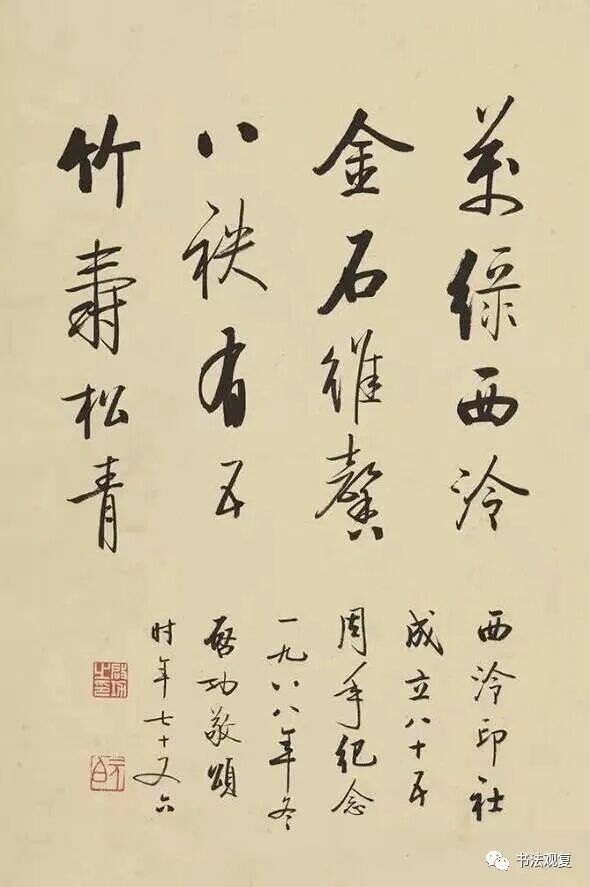 萬綠西泠
金石維馨
八秩有五
竹壽松青
西泠印社
成立八十五
周年紀念
一九八八年冬
啓功敬頌
时年七十又六
元白
书法观复